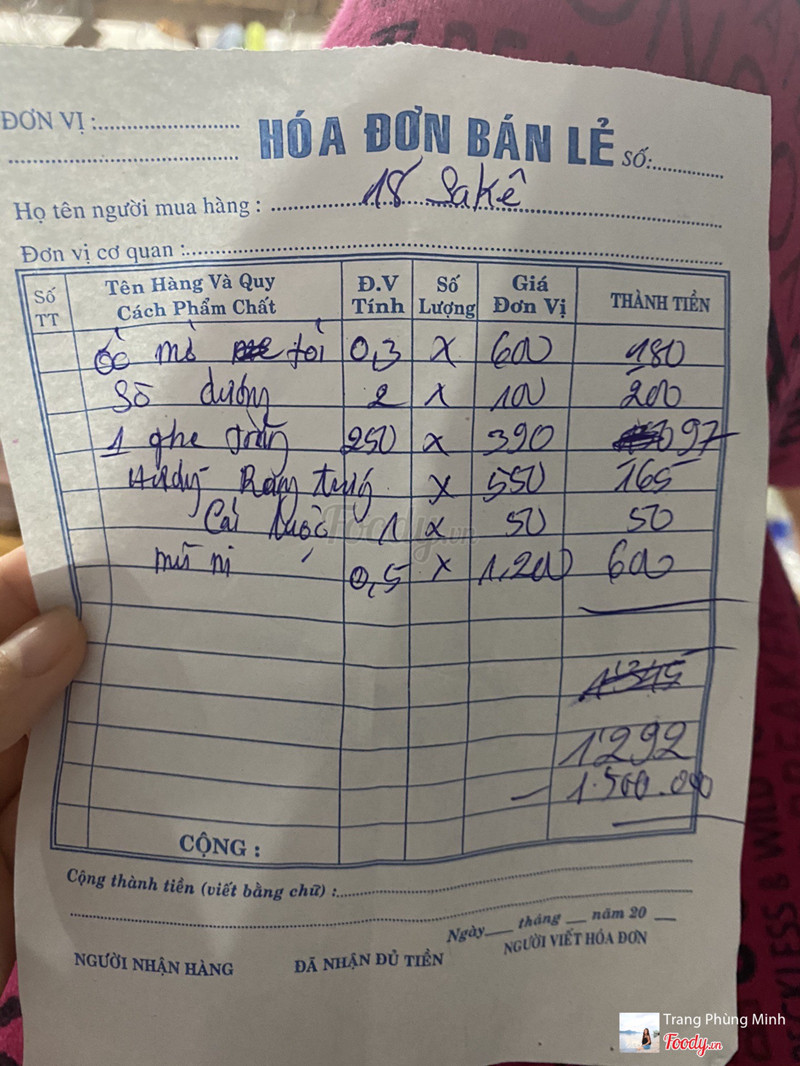 ĐƠN VỊ :
HÓA ĐƠN BÁN LẺ
SỐ:
Họ tên người mua hàng : 18 Sakê
Đơn vị cơ quan :
Số TT Tên Hàng Và Quy Cách Phẩm Chất Đ.V Tính Số Lượng Giá Đơn Vị THÀNH TIỀN
ốc mỡ tỏi 0,3 x 600 180
Sò dương 2 x 100 200
1 ghe 250 x 390 97
Rang x 550 165
1 x 50 50
mú nị 0,5 x 1,200 600
1'345
1'292
1.500.000
CỘNG :
Cộng thành tiền (viết bằng chữ) :
Ngày tháng năm 20
NGƯỜI NHẬN HÀNG ĐÃ NHẬN ĐỦ TIỀN NGƯỜI VIẾT HÓA ĐƠN
Foody.vn
Trang Phùng Minh
Foody.vn